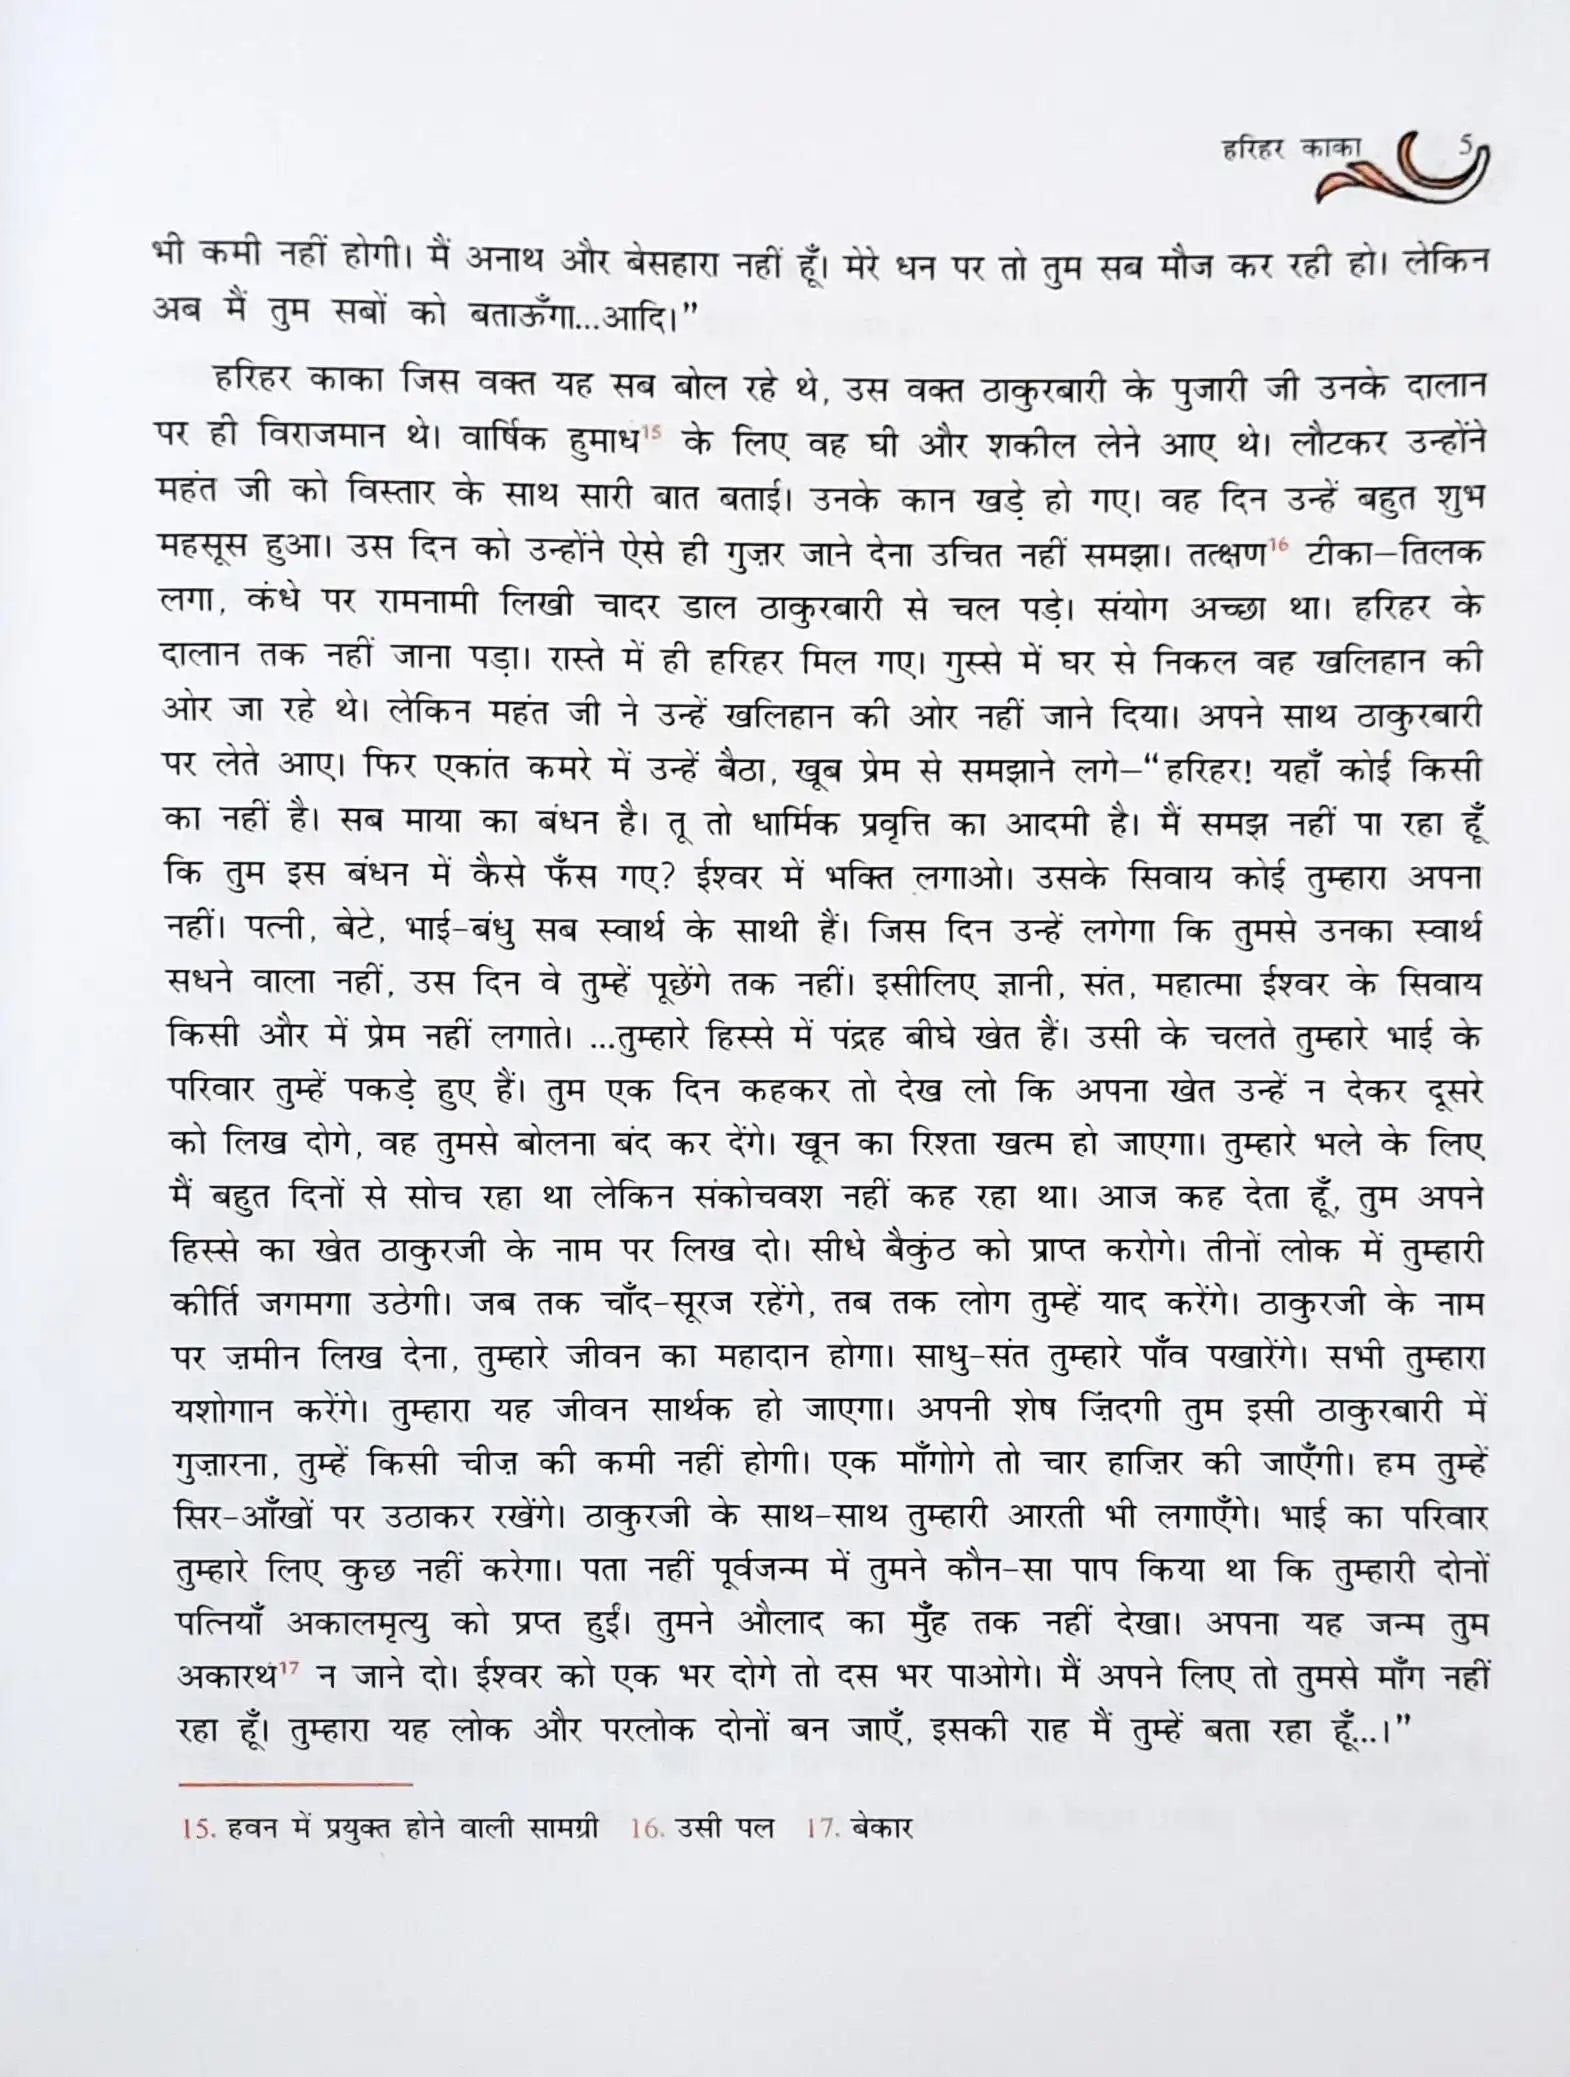 हरिहर काका 5
भी कमी नहीं होगी। मैं अनाथ और बेसहारा नहीं हूँ। मेरे धन पर तो तुम सब मौज कर रही हो। लेकिन
अब मैं तुम सबों को बताऊँगा...आदि।”
हरिहर काका जिस वक्त यह सब बोल रहे थे, उस वक्त ठाकुरबारी के पुजारी जी उनके दालान
पर ही विराजमान थे। वार्षिक हुमाध15 के लिए वह घी और शकील लेने आए थे। लौटकर उन्होंने
महंत जी को विस्तार के साथ सारी बात बताई। उनके कान खड़े हो गए। वह दिन उन्हें बहुत शुभ
महसूस हुआ। उस दिन को उन्होंने ऐसे ही गुज़र जाने देना उचित नहीं समझा। तत्क्षण16 टीका–तिलक
लगा, कंधे पर रामनामी लिखी चादर डाल ठाकुरबारी से चल पड़े। संयोग अच्छा था। हरिहर के
दालान तक नहीं जाना पड़ा। रास्ते में ही हरिहर मिल गए। गुस्से में घर से निकल वह खलिहान की
ओर जा रहे थे। लेकिन महंत जी ने उन्हें खलिहान की ओर नहीं जाने दिया। अपने साथ ठाकुरबारी
पर लेते आए। फिर एकांत कमरे में उन्हें बैठा, खूब प्रेम से समझाने लगे–“हरिहर! यहाँ कोई किसी
का नहीं है। सब माया का बंधन है। तू तो धार्मिक प्रवृत्ति का आदमी है। मैं समझ नहीं पा रहा हूँ
कि तुम इस बंधन में कैसे फँस गए? ईश्वर में भक्ति लगाओ। उसके सिवाय कोई तुम्हारा अपना
नहीं। पत्नी, बेटे, भाई-बंधु सब स्वार्थ के साथी हैं। जिस दिन उन्हें लगेगा कि तुमसे उनका स्वार्थ
सधने वाला नहीं, उस दिन वे तुम्हें पूछेंगे तक नहीं। इसीलिए ज्ञानी, संत, महात्मा ईश्वर के सिवाय
किसी और में प्रेम नहीं लगाते। ...तुम्हारे हिस्से में पंद्रह बीघे खेत हैं। उसी के चलते तुम्हारे भाई के
परिवार तुम्हें पकड़े हुए हैं। तुम एक दिन कहकर तो देख लो कि अपना खेत उन्हें न देकर दूसरे
को लिख दोगे, वह तुमसे बोलना बंद कर देंगे। खून का रिश्ता खत्म हो जाएगा। तुम्हारे भले के लिए
मैं बहुत दिनों से सोच रहा था लेकिन संकोचवश नहीं कह रहा था। आज कह देता हूँ, तुम अपने
हिस्से का खेत ठाकुरजी के नाम पर लिख दो। सीधे बैकुंठ को प्राप्त करोगे। तीनों लोक में तुम्हारी
कीर्ति जगमगा उठेगी। जब तक चाँद-सूरज रहेंगे, तब तक लोग तुम्हें याद करेंगे। ठाकुरजी के नाम
पर ज़मीन लिख देना, तुम्हारे जीवन का महादान होगा। साधु-संत तुम्हारे पाँव पखारेंगे। सभी तुम्हारा
यशोगान करेंगे। तुम्हारा यह जीवन सार्थक हो जाएगा। अपनी शेष ज़िंदगी तुम इसी ठाकुरबारी में
गुज़ारना, तुम्हें किसी चीज़ की कमी नहीं होगी। एक माँगोगे तो चार हाज़िर की जाएँगी। हम तुम्हें
सिर-आँखों पर उठाकर रखेंगे। ठाकुरजी के साथ-साथ तुम्हारी आरती भी लगाएँगे। भाई का परिवार
तुम्हारे लिए कुछ नहीं करेगा। पता नहीं पूर्वजन्म में तुमने कौन-सा पाप किया था कि तुम्हारी दोनों
पत्नियाँ अकालमृत्यु को प्रप्त हुईं। तुमने औलाद का मुँह तक नहीं देखा। अपना यह जन्म तुम
अकारथ17 न जाने दो। ईश्वर को एक भर दोगे तो दस भर पाओगे। मैं अपने लिए तो तुमसे माँग नहीं
रहा हूँ। तुम्हारा यह लोक और परलोक दोनों बन जाएँ, इसकी राह मैं तुम्हें बता रहा हूँ...।”
15. हवन में प्रयुक्त होने वाली सामग्री 16. उसी पल 17. बेकार